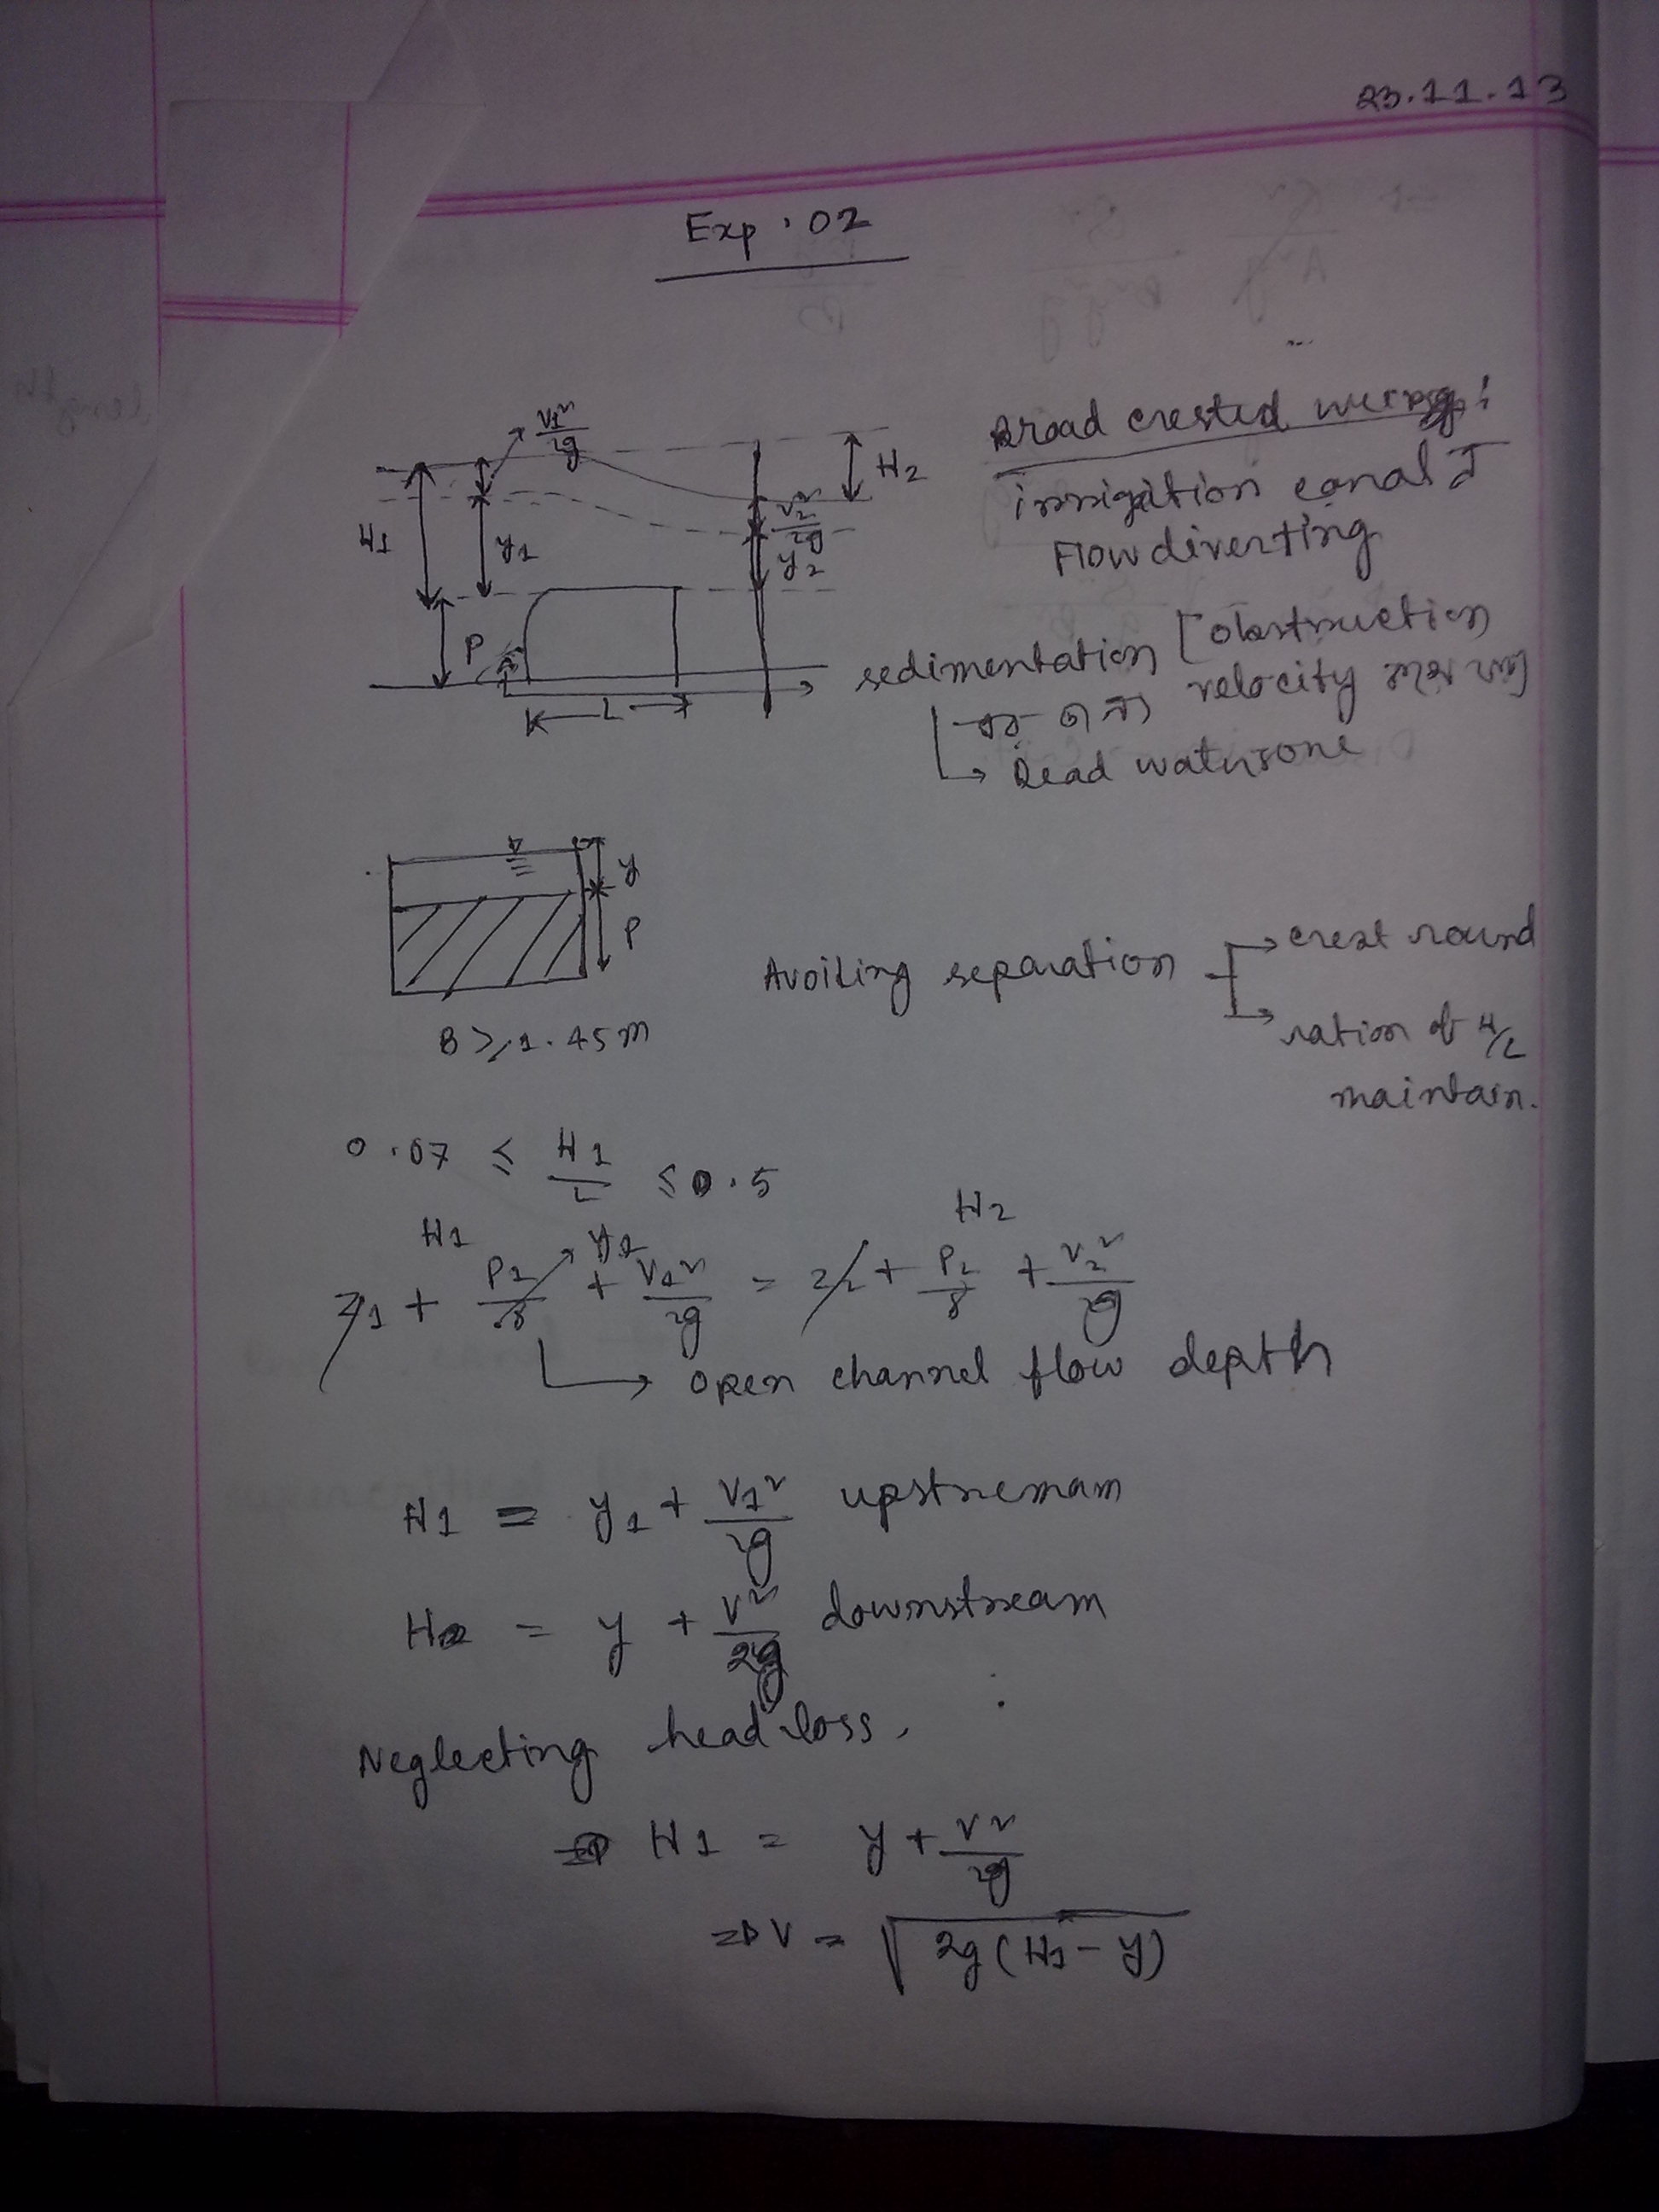 23.11.13
Exp. 02
V₁²/2g
H₂
H₁
y₁
V₂²/2g
y₂
P
L
Broad crested
irrigation canal
Flow diverting
sedimentation [obstruction
velocity
Dead water zone
y
P
B ≥ 1.45m
Avoiding separation → crest round
→ ration of H/L
maintain.
0.07 ≤ H1/L ≤ 0.5
H1 y1 H2
z₁ + P₁/γ + V₁²/2g = z₂ + P₂/γ + V₂²/2g
→ open channel flow depth
H1 = y₁ + V₁²/2g upstremam
H2 = y + V²/2g downstream
Neglecting head loss,
H1 = y + V²/2g
⇒ V = √2g(H1 - y)